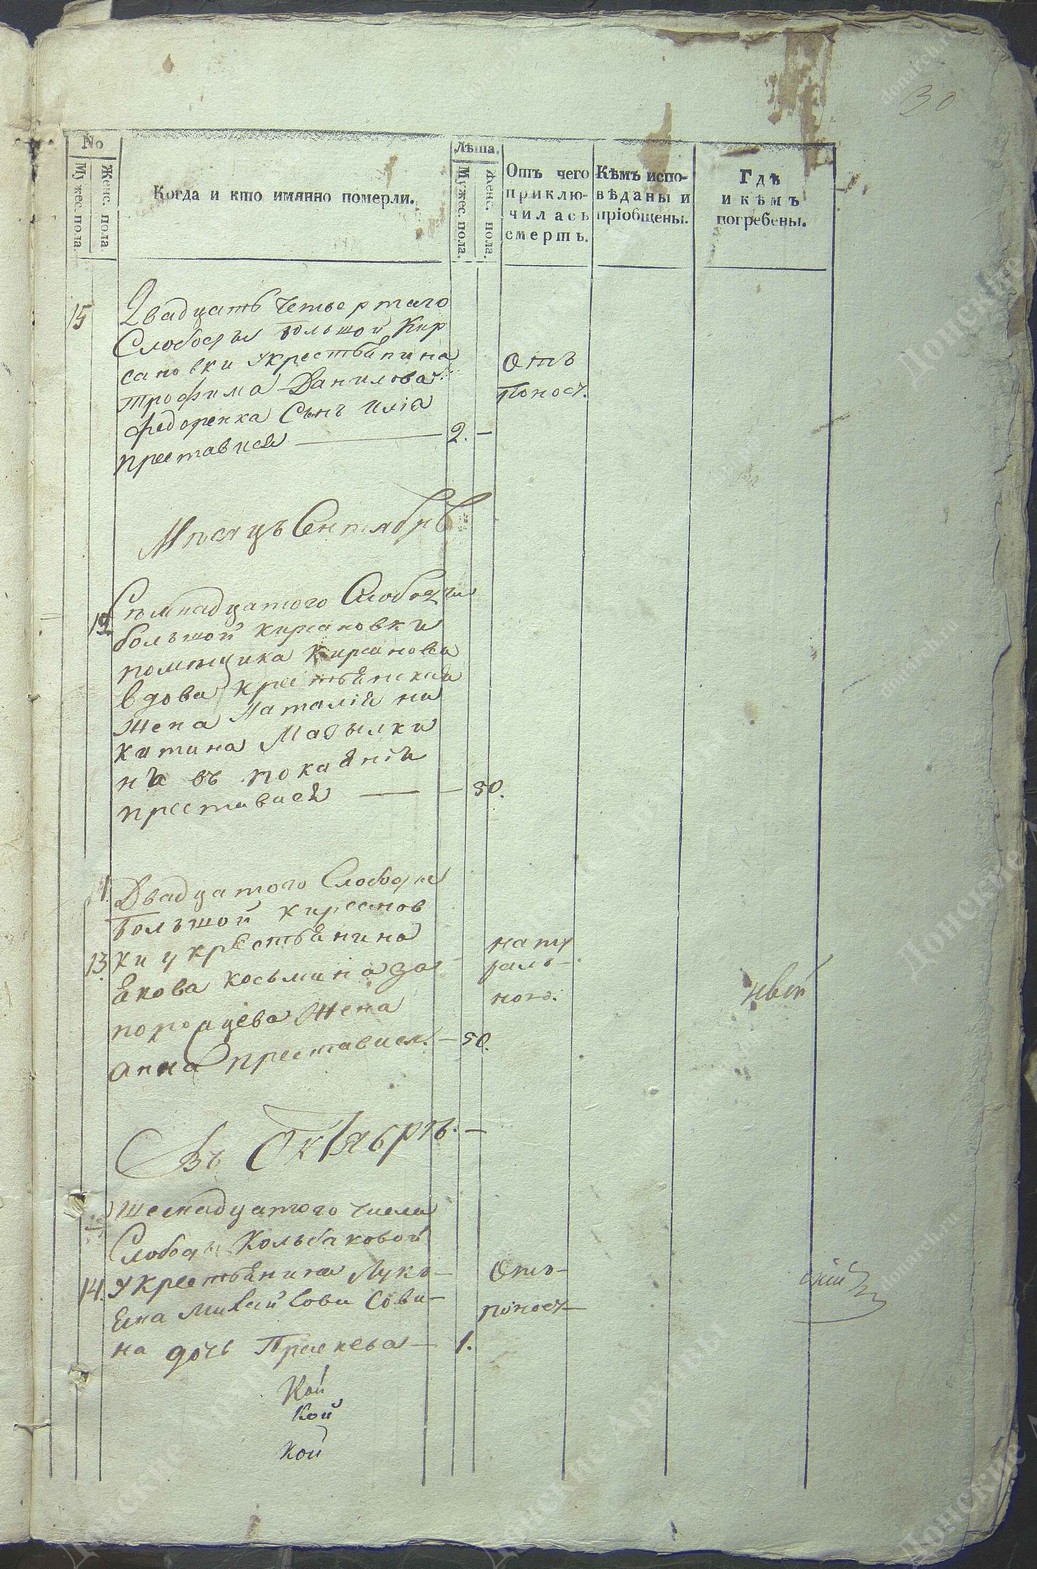 30
No
Мужес. пола.
Женс. пола.
Когда и кто имянно померли.
Лѣта.
Мужес. пола.
Женс. пола.
Отъ чего
приклю-
чилась
смерть.
Кѣмъ испо-
вѣданы и
пріобщены.
Гдѣ
и кѣмъ
погребены.
15
Двадцать четвертаго
Слободы большой Кир
сановки укрестьянина
трофима Данилова
федоренка Сынъ илiа
преставися — 2. —
Отъ
поноса.
Мѣсяцъ Сентябрь
12
Семнадцатого Слободы
большой кирсановки
помещика кирсанова
вдова крестьянская
жена Наталiя ни
китина
въ покаянiи
преставися — 80.
Двадцатого Слободы
большой кирсанов
13.
ки укрестьянина
якова косьмина за
порожцева жена
анна преставися. — 50.
нату
раль-
ною.
Въ Октябрѣ. —
шеснадцатого числа
Слободы Колбаковой
14. укрестьянина Лукь-
яна Михайлова Сови-
на дочь Праскева — 1.
Отъ-
поноса
Кой
Кой
Кой
донские Архивы
donarch.ru